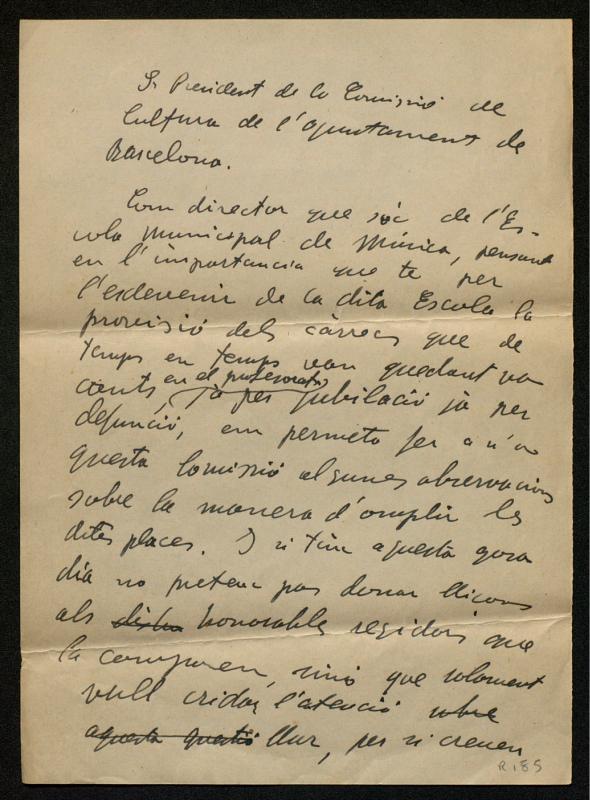 Sr President de la Comissió de
Cultura de l'Ajuntament de
Barcelona.
Com director que sóc de l'Es-
cola Municipal de Música, pensant
en l'importancia que té per
l'esdevenir de la dita Escola la
provisió dels càrrecs que de
temps en temps van quedant va
cants en el professorat, ja per jubilació ja per
defunció, em permeto fer a n'a
questa Comissió algunes observacions
sobre la manera d'omplir les
dites places. I si tinc aquesta gosa
dia no pretenc pas donar lliçons
als honorables regidors que
la componen, sinó que solament
vull cridar l'atenció sobre
aquesta questió llur, per si creuen
R. 185